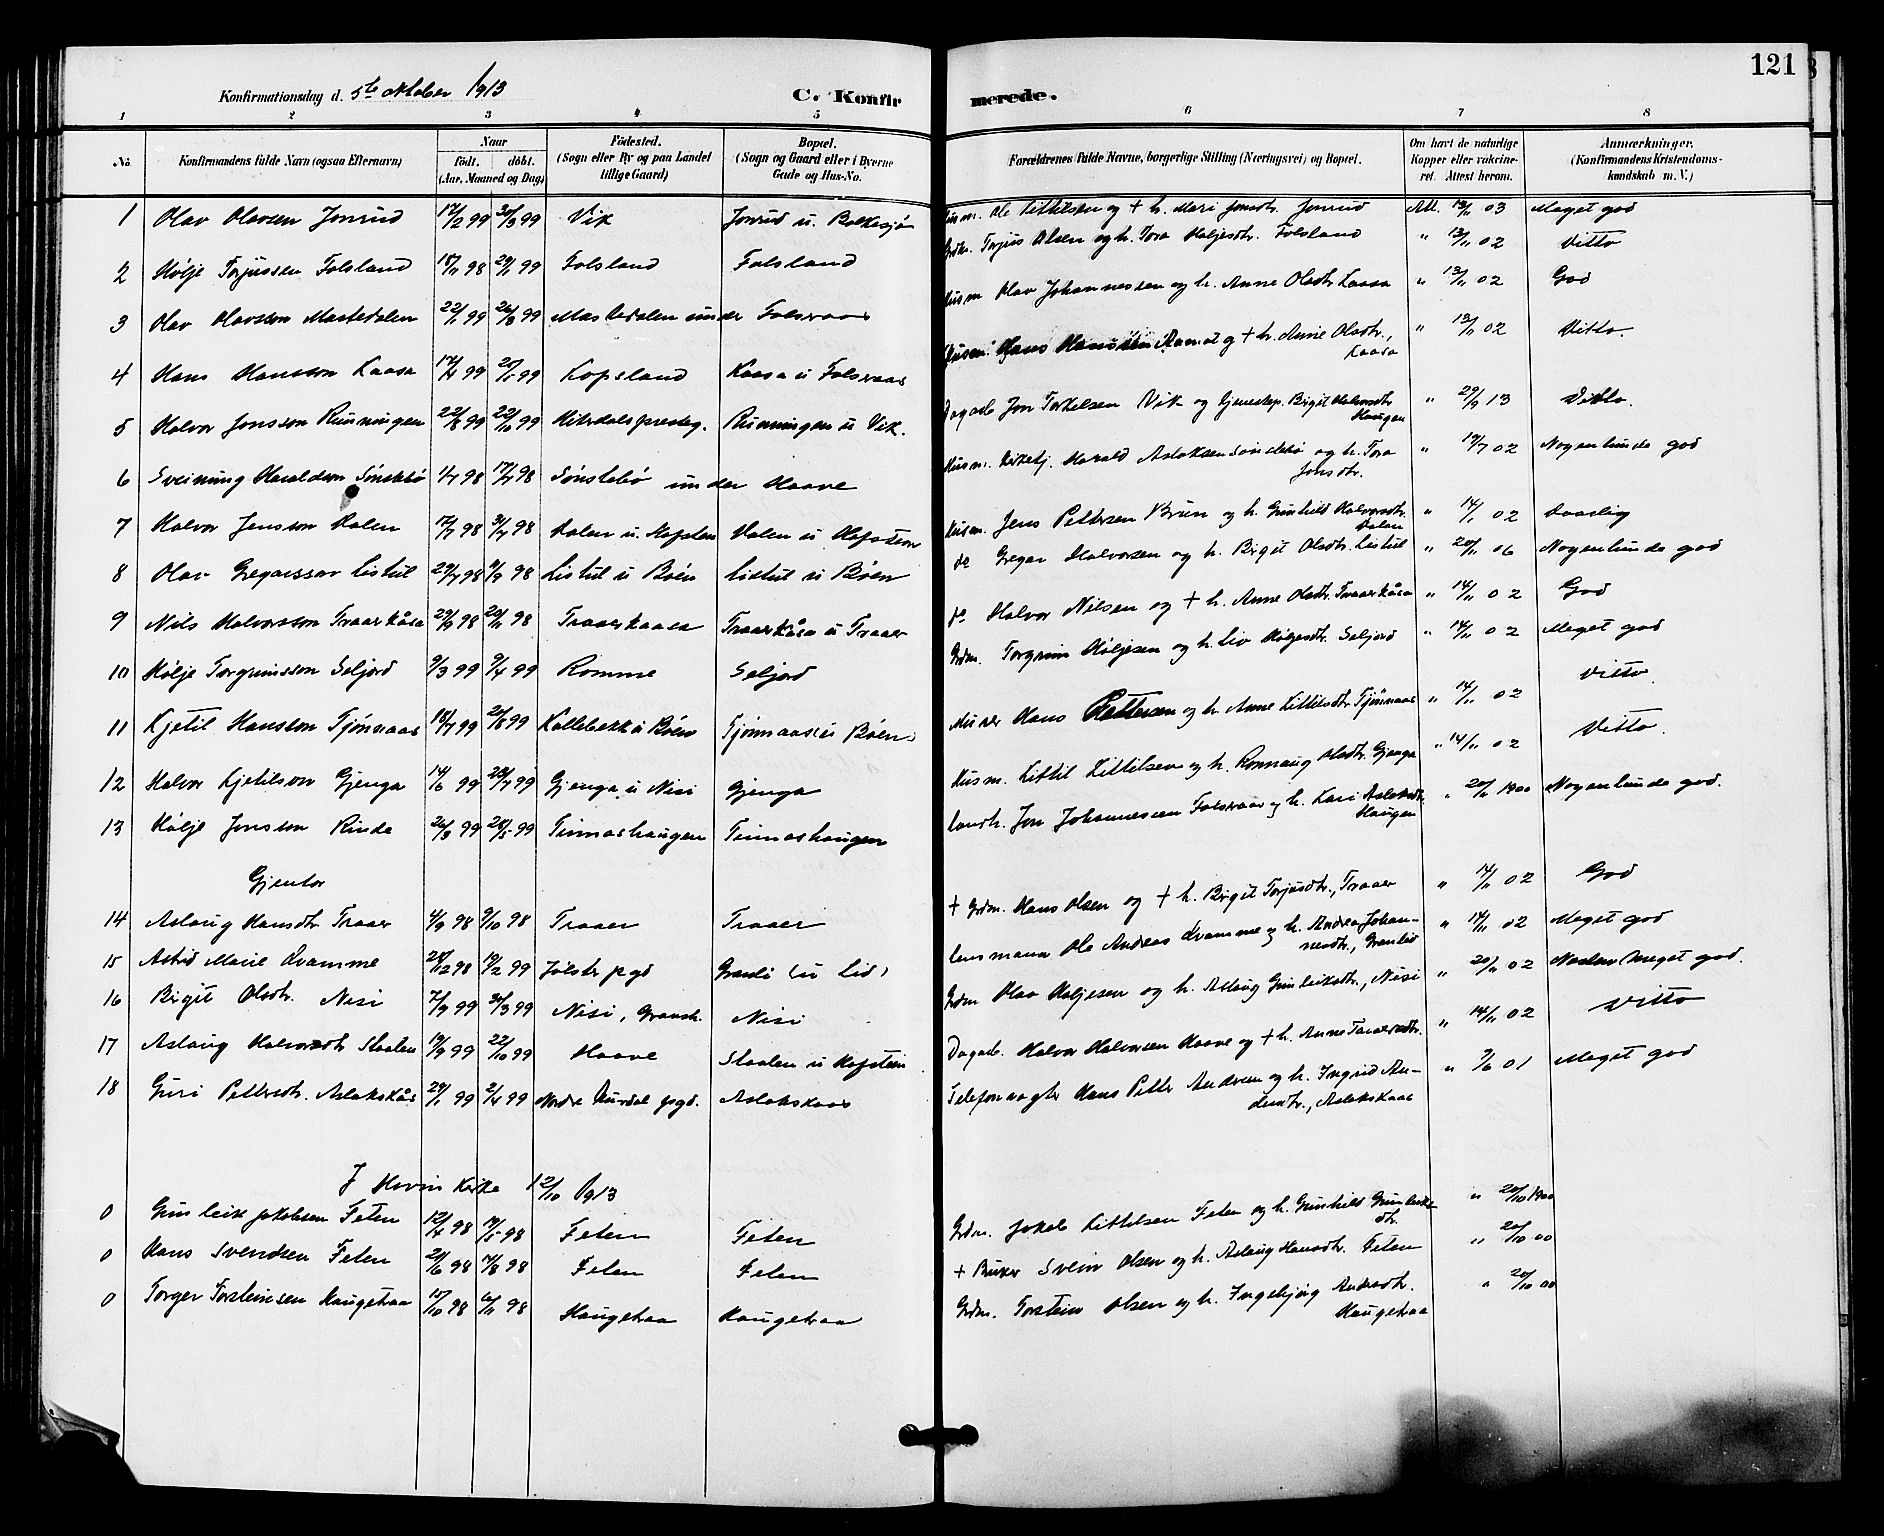 121
Konfirmationsdag d. 5te oktober 1913 C. Konfirmerede.
1 2 3 4 5 6 7 8
No. Konfirmandens fulde Navn (ogsaa Efternavn) Naar födt. döbt. (Aar, Maaned og Dag) Födested. (Sogn eller By og paa Landet tillige Gaard) Bopæl. (Sogn og Gaard eller i Byerne Gade og Hus-No. Forældrenes fulde Navne, borgerlige Stilling (Næringsvei) og Bopæl. Om havt de naturlige Kopper eller vakcineret. Attest herom. Anmærkninger. (Konfirmandens Kristendomskundskab m. V.)
1 Olav Olavsen Jonrud 17/2 99 31/3 99 Vik Jonrud u. Bolkesjø Husm. Ole Kittilsen og + h. Mari Jonsdtr. Jonrud Att. 13/11 03 Meget god
2 Hølje Torjussen Folsland 18/11 98 29/1 99 Folsland Folsland Grdbr. Torjus Olsen og h. Tora Høljesdtr. Folsland " 13/11 02 Ditto
3 Olav Olavsson Mastedalen 22/1 99 26/3 99 Mastedalen under Folseraas Husm Olav Johannessen og h. Anne Olsdtr. Kaasa " 13/11 02 God
4 Hans Hansson Kaasa 17/4 99 21/5 99 Kopsland Kaasa u Folseraas Husm. Hans Hansen og + h. Anne Olsdtr., Kaasa " 13/11 02 Ditto.
5 Halvor Jonsson Runningen 22/8 99 22/10 99 Hiterdals presteg. Runningen u Vik. Dagarb. Jon Torkelsen Vik og Gjenestep. Birgit Halvorsdtr Haugen " 29/9 13 Ditto.
6 Sveinung Haraldsen Sønstebø 1/7 98 17/7 98 Sønstebø under Haave Husm. Kirketj. Harald Aslaksen Søndebø og h. Tora Jonsdtr. " 19/7 02 Nogenlunde god
7 Halvor Jensson Dalen 17/7 98 31/7 98 Dalen u. Hofsten Dalen u Hofsteen Husm. Jens Pettersen Brun og h. Gunhild Halvorsdtr. Dalen " 14/1 02 Daarlig
8 Olav Gregarsson Listul 29/7 98 4/9 98 Listul u Bøen Listul u Bøen do Gregar Halvorsen og h. Birgit Olsdtr. Listul " 20/11 06 Nogenlunde god
9 Nils Halvorsson Traaerkåsa 29/9 98 20/11 98 Traaerkaasa Traaerkåsa u Traaer do Halvor Nilsen og + h. Anne Olsdtr. Traaerkåsa " 14/11 02 God
10 Hølje Torgrimsson Seljord 9/3 99 9/4 99 Romme Seljord Grdm. Torgrim Høljesen og h. Liv Høljesdtr. Seljord " 14/11 02 Meget god
11 Kjetil Hansson Tjønnaas 18/7 99 20/8 99 Kallebekk u Bøen Tjønnaas (u Bøen) Murer Hans Pettersen og h. Anne Kittilsdtr. Tjønnaas " 14/11 02 Ditto
12 Halvor Kjetilson Gjenga 14/6 99 23/7 99 Gjenga u Nisi Gjenga Husm. Kittil Kittilsen og h. Rønnaug Olsdtr. Gjenga " 14/11 02 Ditto.
13 Hølje Jonsson Rinde 26/3 99 28/5 99 Tinneshaugen Tinneshaugen Landh. Jon Johannessen Folseraas og h. Kari Aslaksdtr. Haugen " 20/11 1900 Nogenlunde god.
Gjentor
14 Aslaug Hansdtr. Traaer 4/9 98 9/10 98 Traaer Traaer + Grdm. Hans Olsen og + h. Birgit Torjusdtr., Traaer " 14/11 02 God
15 Astrid Marie Kvamme 28/12 98 19/2 99 Jølster pgd Granli (u Lid) Lensmann Ole Andreas Kvamme og h. Andrea Johannesdtr., Granlid " 14/11 02 Meget god
16 Birgit Olsdtr. Nisi 7/2 99 31/3 99 Nisi, Gransh. Nisi Grdm Olav Høljesen og h. Aslaug Gunleiksdtr., Nisi " 20/11 02 Næsten meget god.
17 Aslaug Halvorsdtr Staalen 19/9 99 22/10 99 Haave Staalen u Hofstein Dagarb. Halvor Halvorsen Haave og + h. Anne Taraldsdtr. " 14/11 02 Ditto
18 Guri Pettersdtr. Aslakskås 29/1 99 2/4 99 Nordre Aurdal pgd. Aslakskaas Telefonvogter Hans Petter Andresen og h. Ingrid Andersdtr., Aslakskaas " 9/6 01 Meget god
I Hovin Kirke 12/10 1913
0 Gunleik Jakobsen Feten 12/4 98 19/5 98 Feten Feten Grdm. Jakob Kittilsen Feten og h. Gunhild Gunleiksdtr. " 20/10 1900
0 Hans Svendsen Feten 21/6 98 14/8 98 Feten Feten + Bruker Svein Olsen og h. Aslaug Hansdtr. Feten " 20/10 00
0 Torger Torsteinsen Haugetraa 15/10 98 6/11 98 Haugetraa Haugetraa Grdm. Torstein Olsen og h. Ingebjørg Andersdtr. Haugetraa " 20/10 00